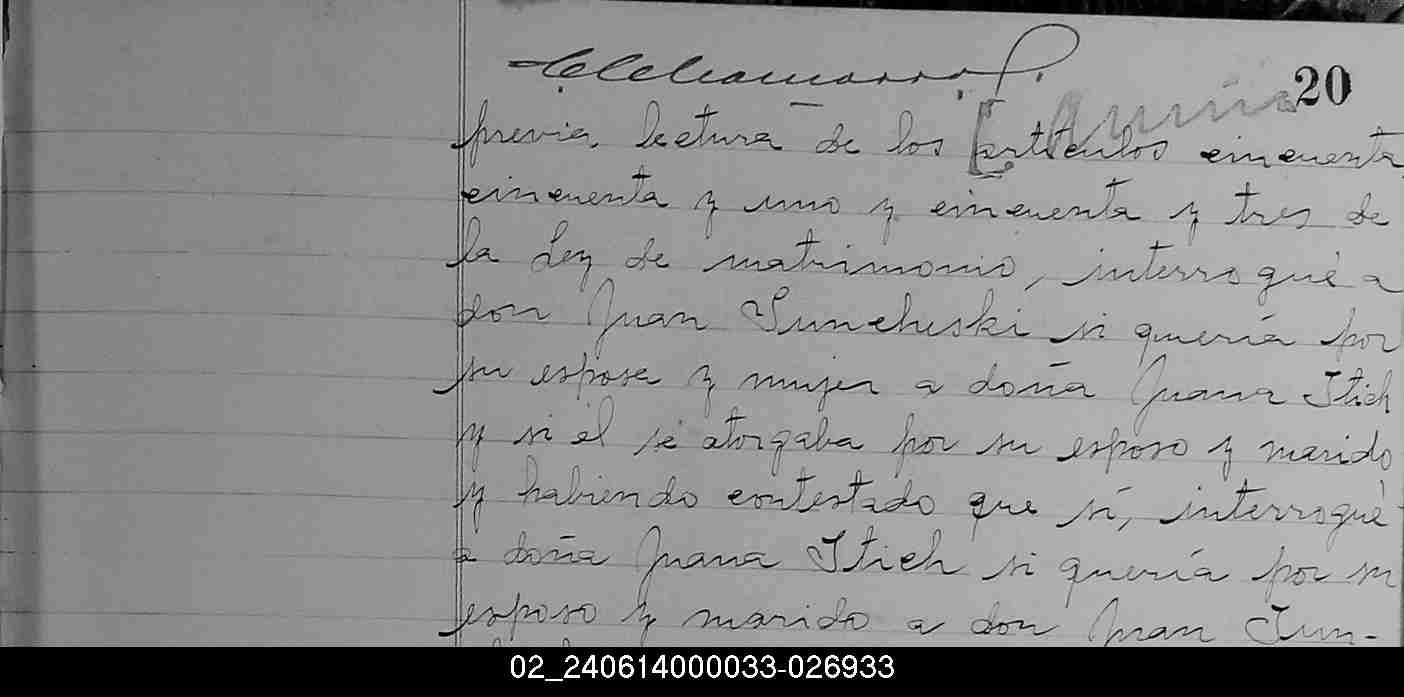 20
previa lectura de los artículos cincuenta,
cincuenta y uno y cincuenta y tres de
la Ley de matrimonio, interrogué a
don Juan Suncheski si quería por
su esposa y mujer a doña Juana Stich
y si él se otorgaba por su esposo y marido
y habiendo contestado que sí, interrogué
a doña Juana Stich si quería por su
esposo y marido a don Juan Sun-
02_240614000033-026933